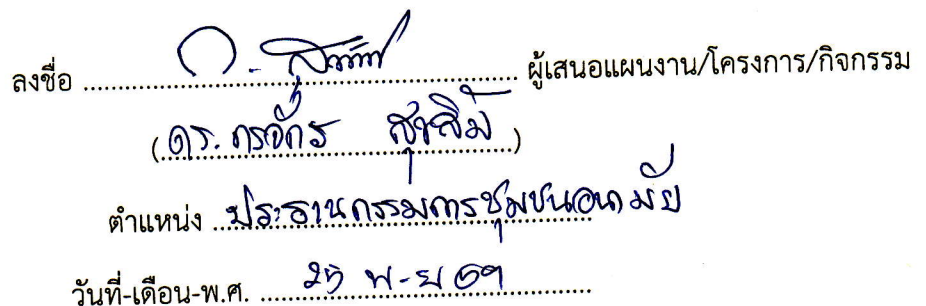 ลงชื่อ ........ ผู้เสนอแผนงาน/โครงการ/กิจกรรม
(ดร. กรจักร )
ตำแหน่ง ประธานกรรมการชุมชนอนามัย
วันที่-เดือน-พ.ศ. พ-ย